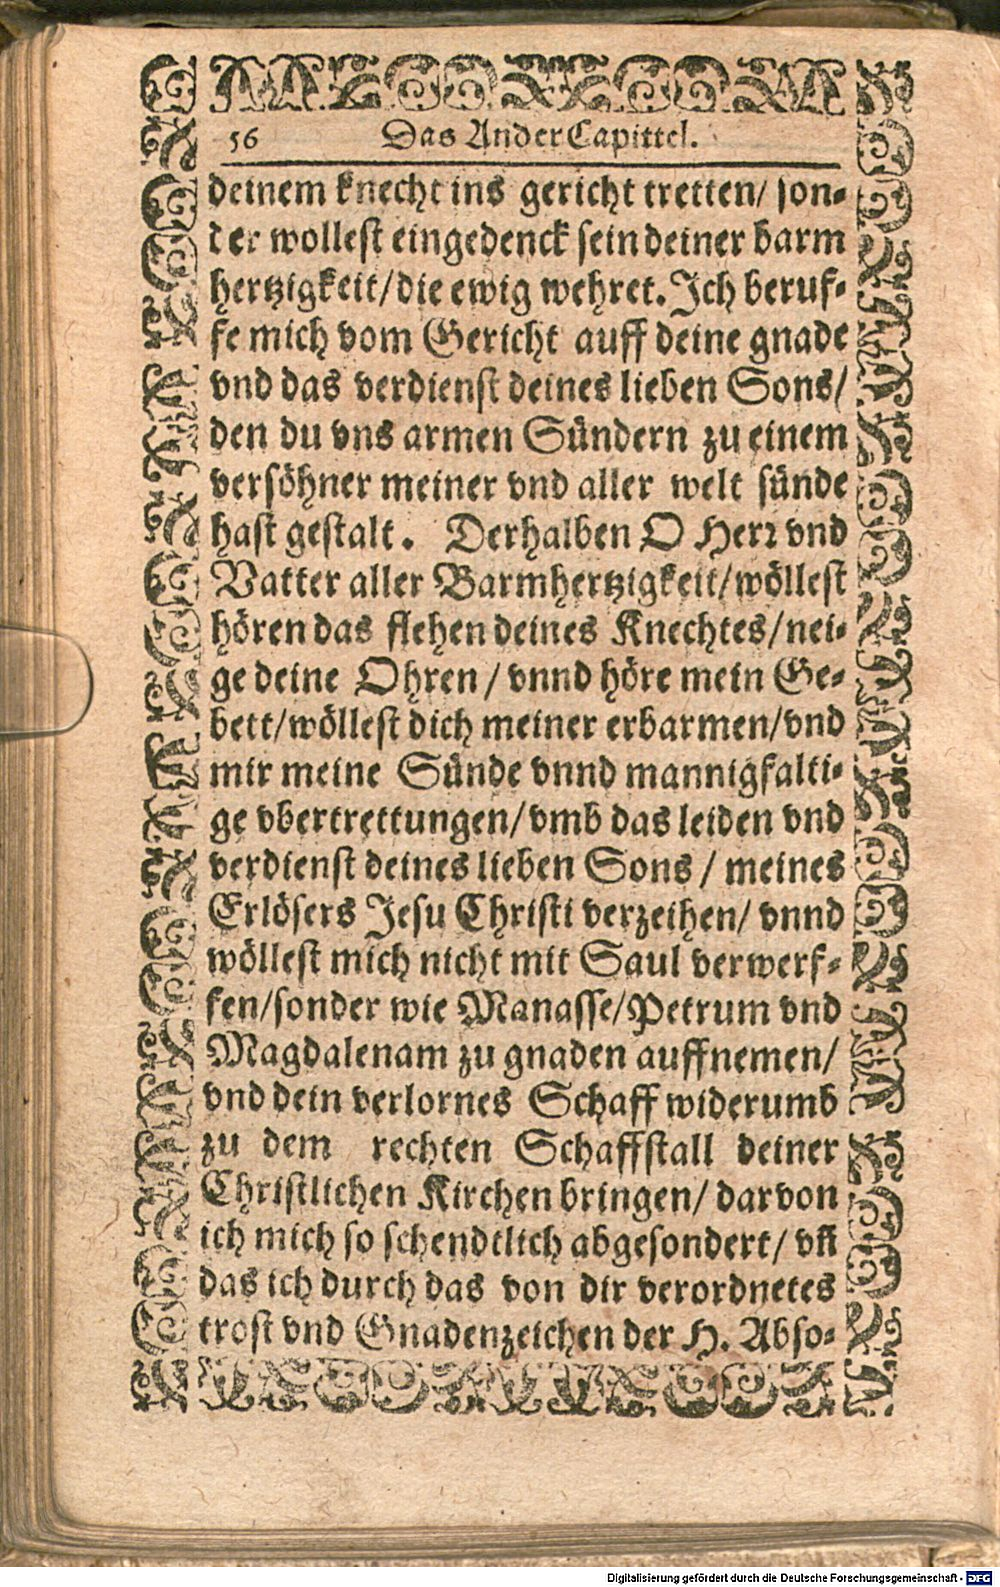 56 Das Ander Capittel.
deinem knecht ins gericht tretten/ son-
der wollest eingedenck sein deiner barm
hertzigkeit/die ewig wehret. Ich beruf-
fe mich vom Gericht auff deine gnade
vnd das verdienst deines lieben Sons/
den du vns armen Sündern zu einem
versöhner meiner vnd aller welt sünde
hast gestalt. Derhalben O Herr vnd
Vatter aller Barmhertzigkeit/wöllest
hören das flehen deines Knechtes/nei-
ge deine Ohren/ vnnd höre mein Ge-
bett/wöllest dich meiner erbarmen/vnd
mir meine Sünde vnnd mannigfalti-
ge vbertrettungen/vmb das leiden vnd
verdienst deines lieben Sons / meines
Erlösers Jesu Christi verzeihen/ vnnd
wöllest mich nicht mit Saul verwerf-
fen/sonder wie Manasse/Petrum vnd
Magdalenam zu gnaden auffnemen/
vnd dein verlornes Schaff widerumb
zu dem rechten Schaffstall deiner
Christlichen Kirchen bringen/ darvon
ich mich so schendtlich abgesondert/ vñ
das ich durch das von dir verordnetes
trost vnd Gnadenzeichen der H. Abso-
Digitalisierung gefördert durch die Deutsche Forschungsgemeinschaft - DFG